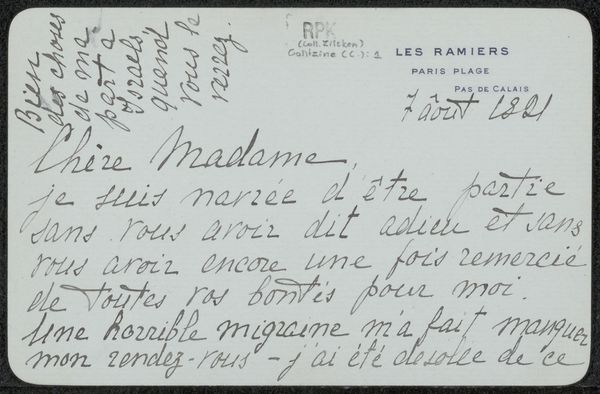 Bien
des choses
de ma
part a
Israels
quand
vous le
verrez.
RPK
(Coll. Zilcken)
LES RAMIERS
PARIS PLAGE
PAS DE CALAIS
7 août 1921
Chère Madame,
je suis navrée d'être partie
sans vous avoir dit adieu et sans
vous avoir encore une fois remercié
de toutes vos bontés pour moi.
Une horrible migraine m'a fait manquer
mon rendez-vous – j'ai été desolée de ce